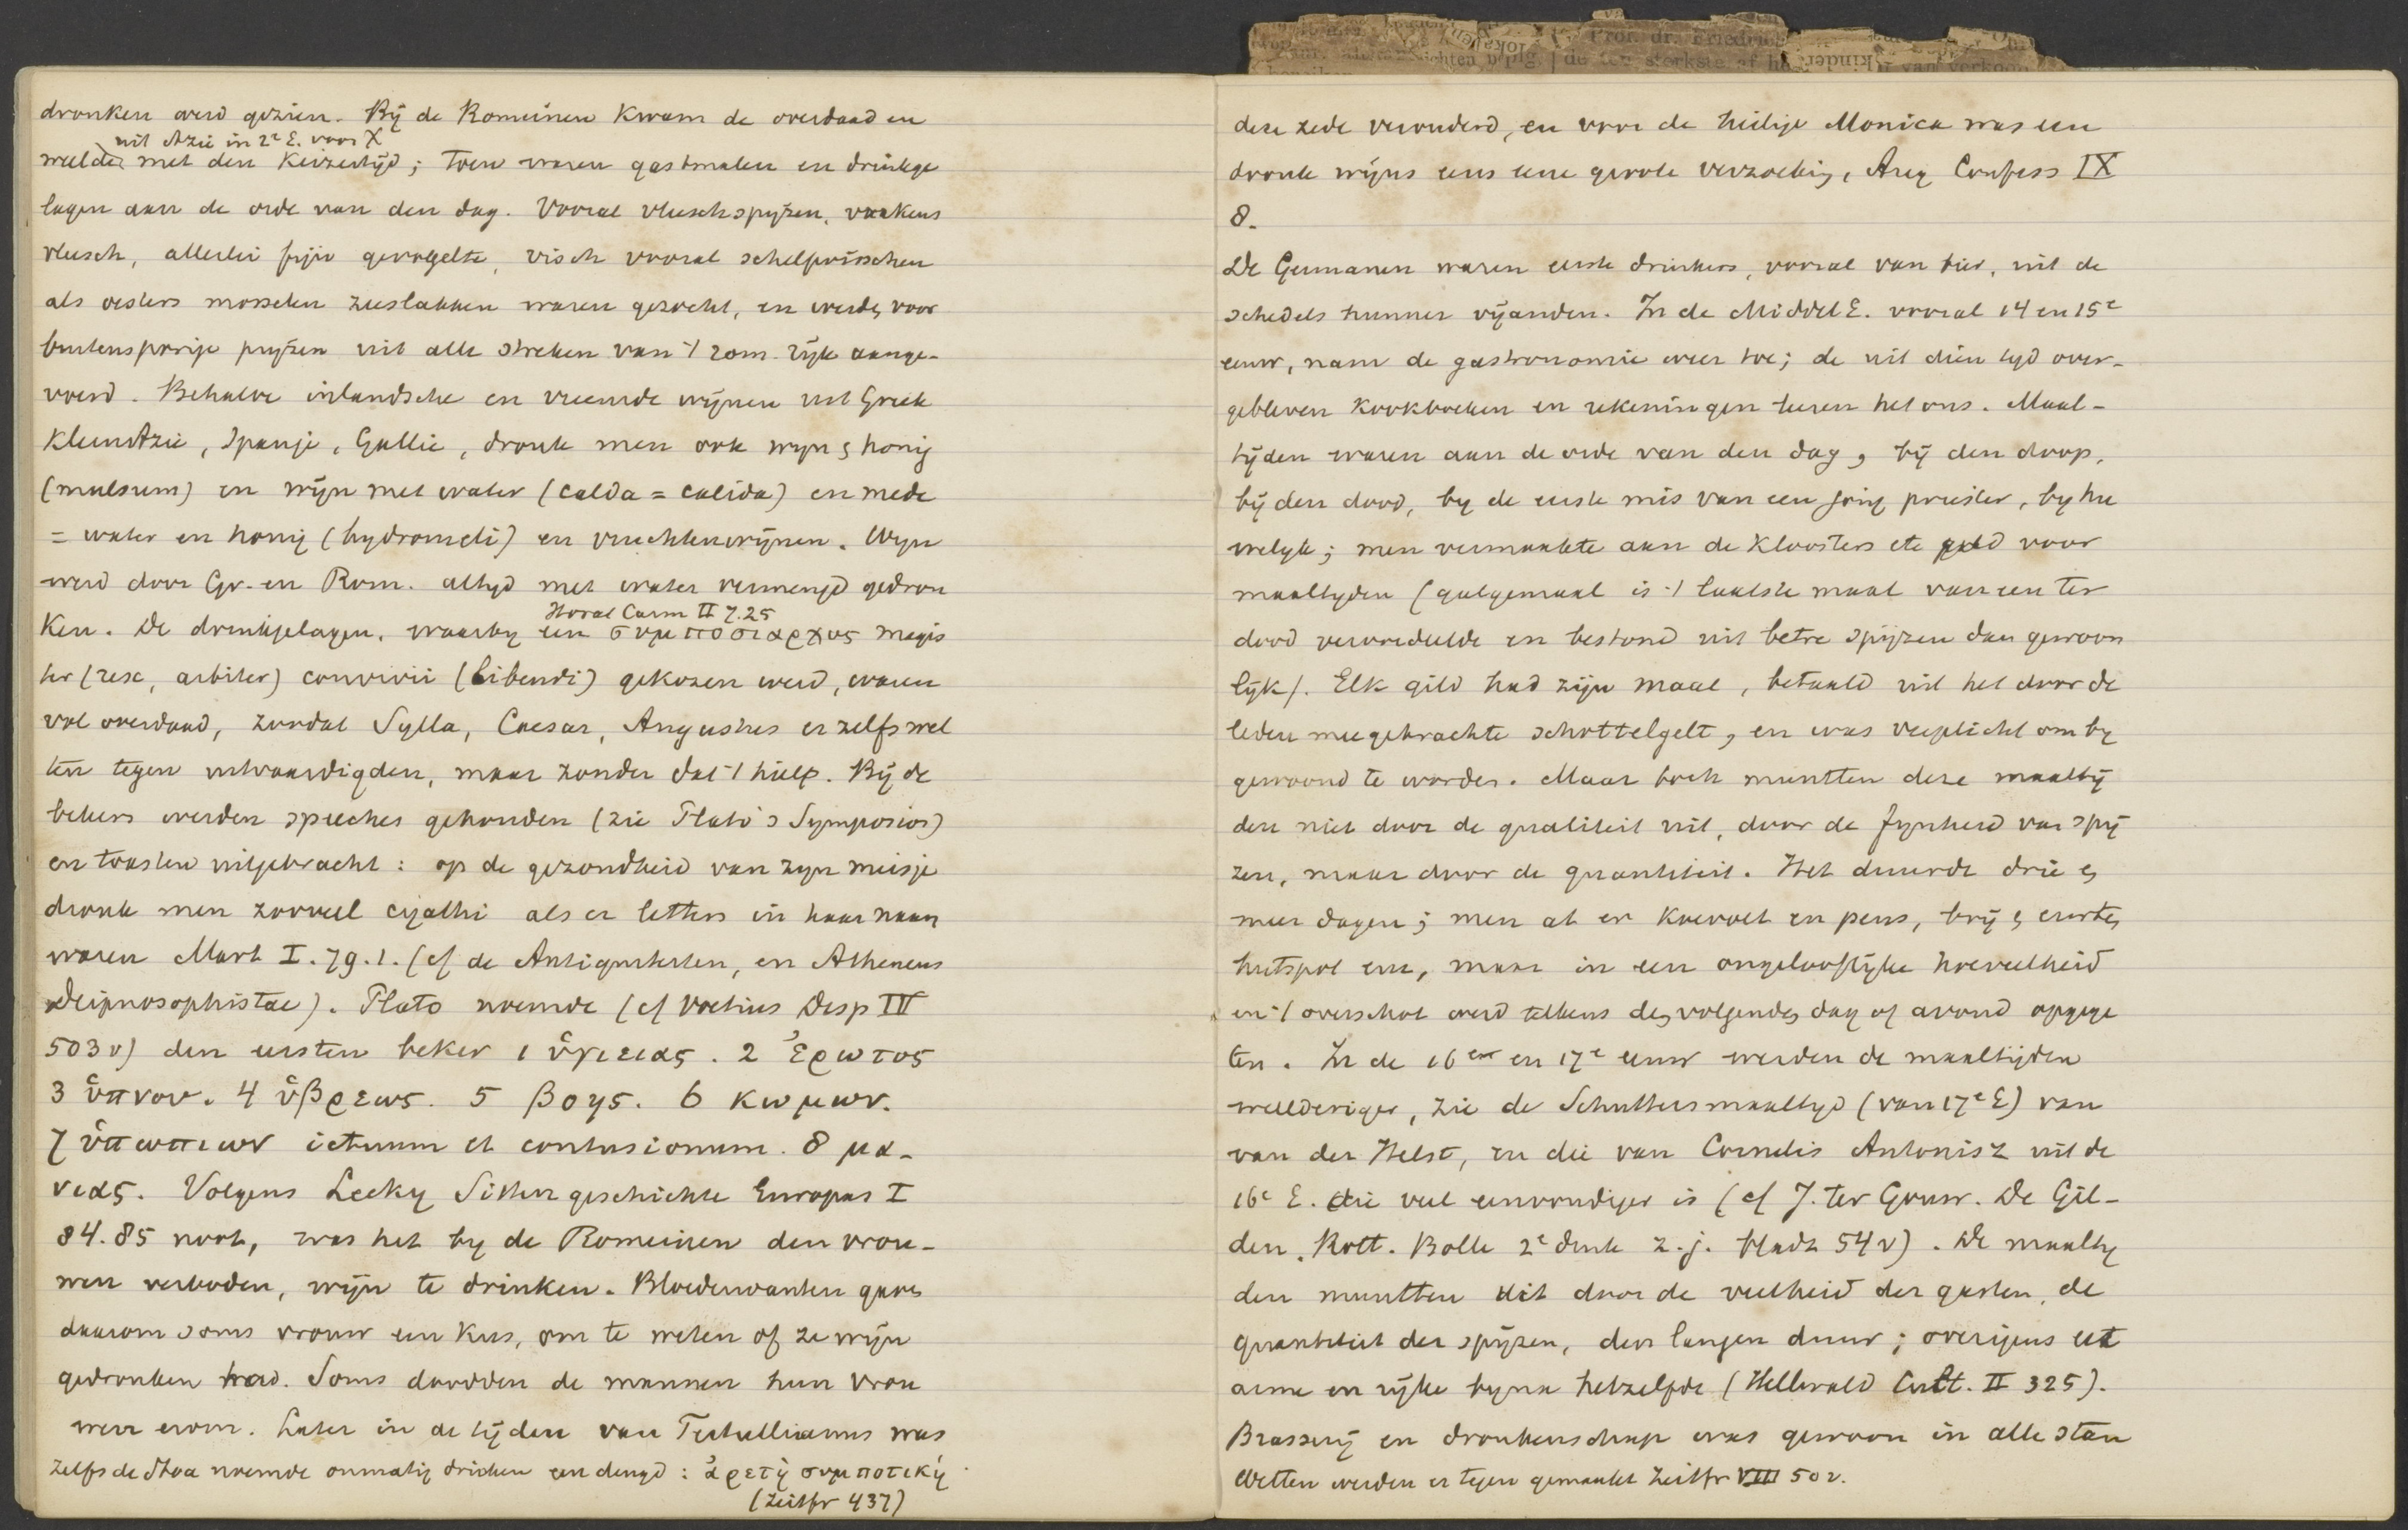 dronken werd gezien. Bij de Romeinen kwam de overdaad en
uit Azie in 2e E. voor X
weelde met den keizertijd; toen waren gastmalen en drinkge
lagen aan de orde van den dag. Vooral vleeschspijzen, varkens
vleesch, allerlei fijn gevogelte, visch vooral schelpvisschen
als oesters mosselen zeeslakken waren gezocht, en werden voor
buitensporige prijzen uit alle streken van 't rom. rijk aange-
voerd. Behalve inlandsche en vreemde wijnen uit Griek
KleinAzie, Spanje, Gallie, dronk men ook wijn en honig
(mulsum) en wijn met water (calda = calida) en mede
= water en honig (hydromeli) en vruchtenwijnen. Wijn
werd door Gr. en Rom. altijd met water vermengd gedron
Horat Carm II 7.25
ken. De drinkgelagen, waarbij een συμποσιαρχος magis
ter (rex, arbiter) convivii (bibendi) gekozen werd, waren
vol overdaad, zoodat Sylla, Caesar, Augustus er zelfs wet
ten tegen uitvaardigden, maar zonder dat 't hielp. Bij de
bekers werden speeches gehouden (zie Plato's Symposion)
en toasten uitgebracht: op de gezondheid van zijn meisje
dronk men zooveel cyathi als er letters in haar naam
waren Mart I. 79.1. (cf de Antiquiteiten, en Atheneus
Deipnosophistae). Plato noemde (cf Voetius Disp IV
503v) den eersten beker 1 ὑγιειας. 2 Ἐρωτος
3 ὑπνου. 4 ὑβρεως. 5 βοης. 6 κωμων.
7 ὑπωπιων ictuum et contusionum. 8 μα-
νιας. Volgens Lecky Sittengeschichte Europas I
84.85 noot, was het bij de Romeinen den vrou-
wen verboden, wijn te drinken. Bloedverwanten gaven
daarom soms vrouw een kus, om te weten of ze wijn
gedronken had. Soms doodden de mannen hun vrou
wen erom. Later in de tijden van Tertullianus was
zelfs de Stoa noemde onmatig drinken een deugd: ἀρετὴ συμποτικὴ.
(Zeitfr 437)
deze zede veranderd, en voor de heilige Monica was een
dronk wijns eens eene groote verzoeking, Aug Confess IX
8.
De Germanen waren eerste drinkers, vooral van bier, uit de
schedels hunner vijanden. In de MiddelE. vooral 14 en 15e
eeuw, nam de gastronomie weer toe; de uit dien tijd over-
gebleven kookboeken en rekeningen leeren het ons. Maal-
tijden waren aan de orde van den dag, bij den doop,
bij den dood, bij de eerste mis van een jong priester, bij hu
welijk; men vermaakte aan de kloosters etc geld voor
maaltijden (galgemaal is 't laatste maal van een ter
dood veroordeelde en bestond uit betre spijzen dan gewoon
lijk). Elk gild had zijn maal, betaald uit het door de
leden meegebrachte schottelgelt, en was verplicht om bij
gewoond te worden. Maar toch muntten deze maaltij
den niet door de qualiteit uit, door de fijnheid van spij
zen, maar door de quantiteit. Het duurde drie en
meer dagen; men at er koevoet en pens, brij en erwten
hutspot enz, maar in een ongelooflijke hoeveelheid
en 't overschot werd telkens den volgenden dag of avond opgege
ten. In de 16en en 17e eeuw werden de maaltijden
weelderiger, zie de Schuttersmaaltijd (van 17e E) van
van der Helst, en die van Cornelis Antonisz uit de
16e E. die veel eenvoudiger is (cf J. ter Gouw. De Gil-
den. Rott. Bolle 2e druk z. j. bladz 54v). De maaltij
den muntten uit door de veelheid der gasten, de
quantiteit der spijzen, den langen duur; overigens eet
arme en rijke bijna hetzelfde (Hellwald Cult. II 325).
Brasserij en dronkenschap was gewoon in alle stan
Wetten werden er tegen gemaakt Zeitfr VIII 50v.
Prof. dr. Friedrich
lokalen
kinder